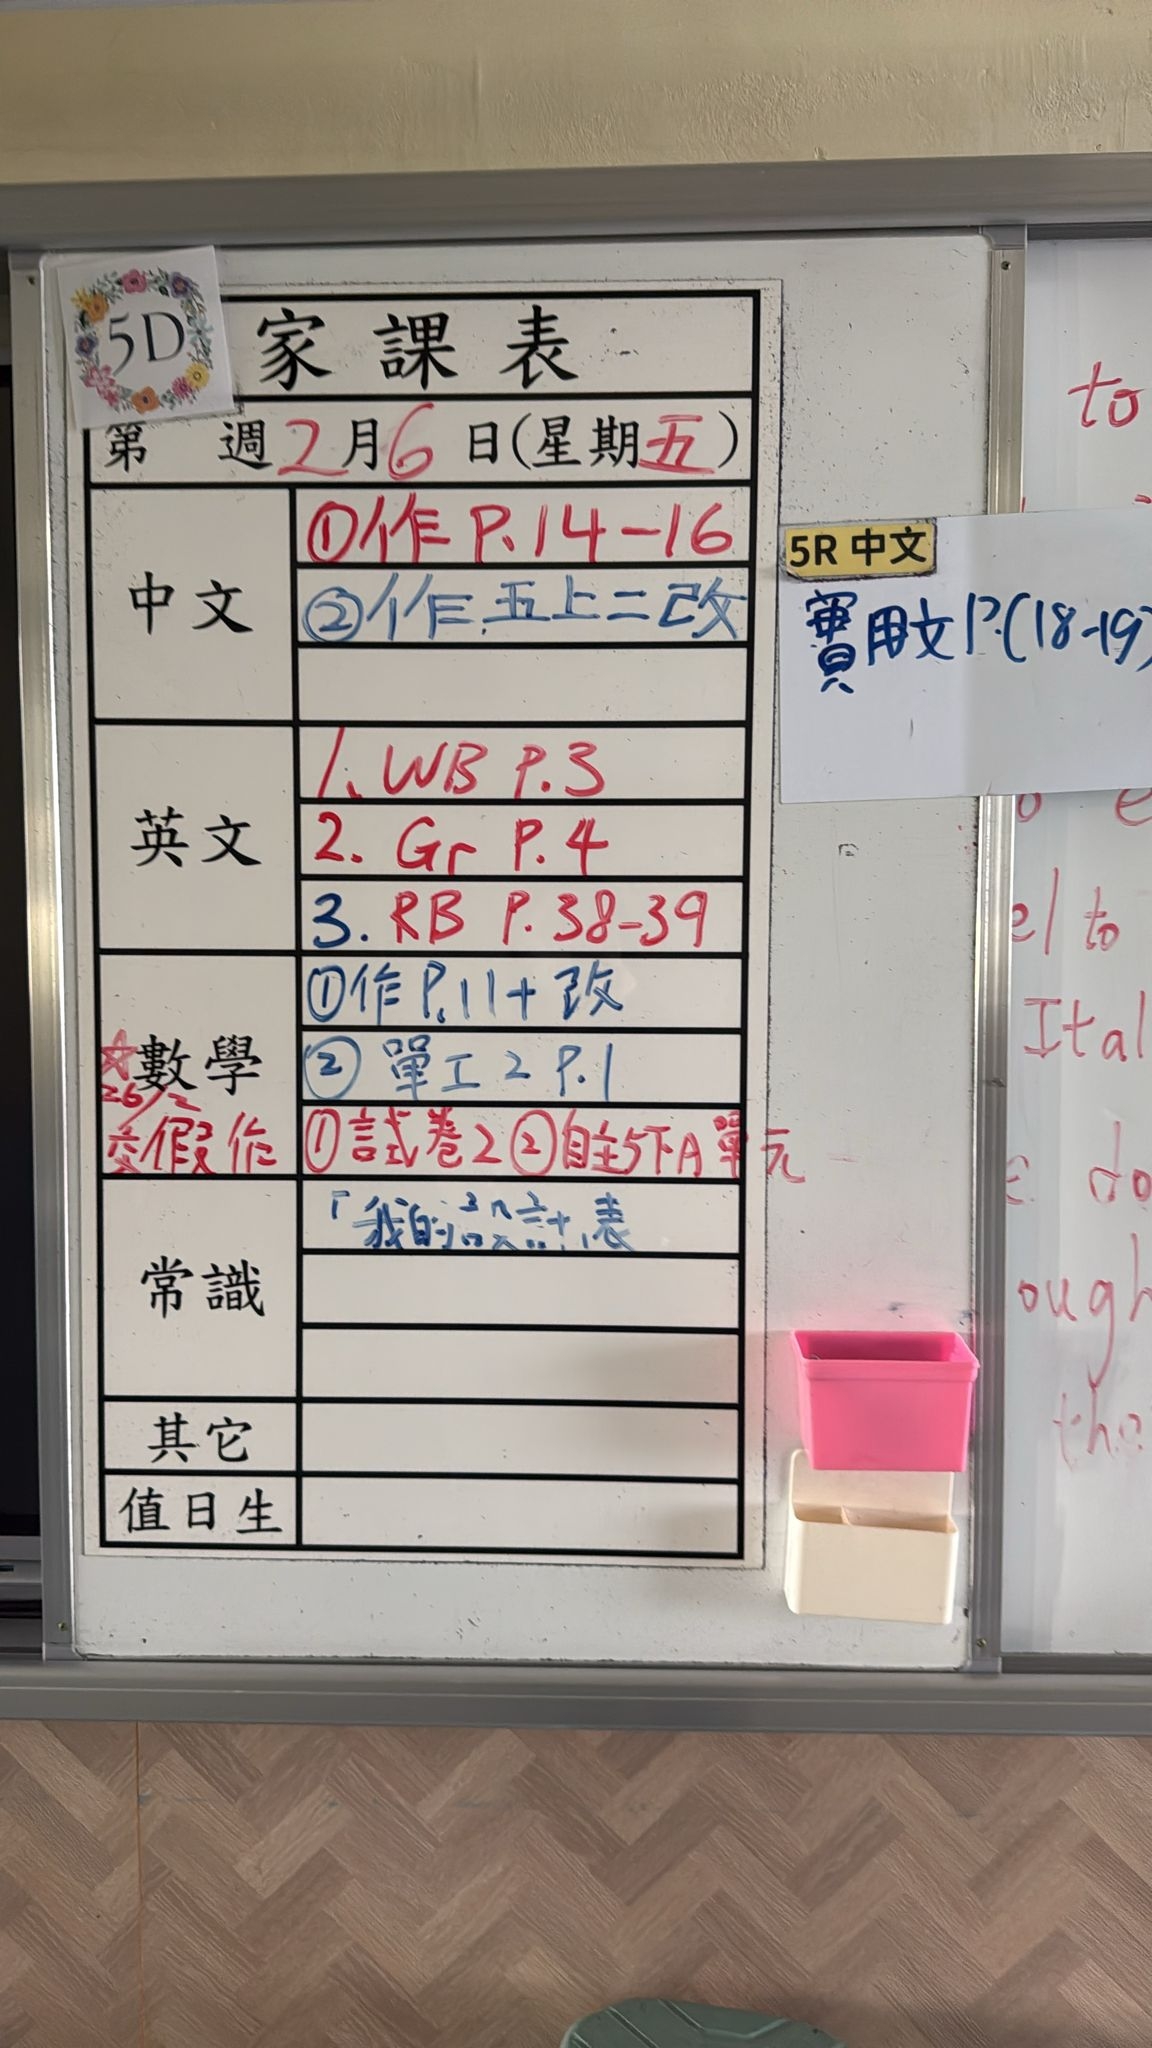 5D
家課表
第 週2月6日(星期五)
中文
①作 P.14-16
②作.五上二改
英文
1. WB P.3
2. Gr P.4
3. RB P.38-39
數學
①作 P.11+改
②單工2 P.1
☆26/2
交假作
①試卷2②自主5下A單元
常識
「我的設計」表
其它
值日生
5R 中文
實用文 P.(18-19)
to
el to
Ital
do
ough
tha